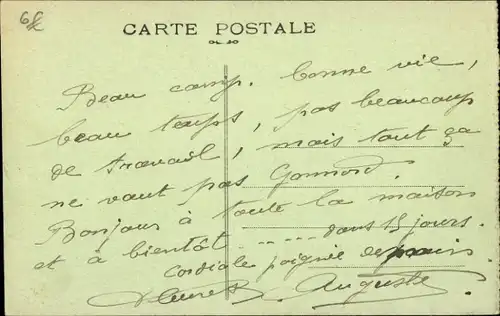 CARTE POSTALE
Beau camp. bonne vie,
beau temps, pas beaucoup
de travail, mais tout ça
ne vaut pas Gonnord.
Bonjour à toute la maison
et à bientôt - - - - dans 15 jours.
cordiale poignée de mains
Auguste